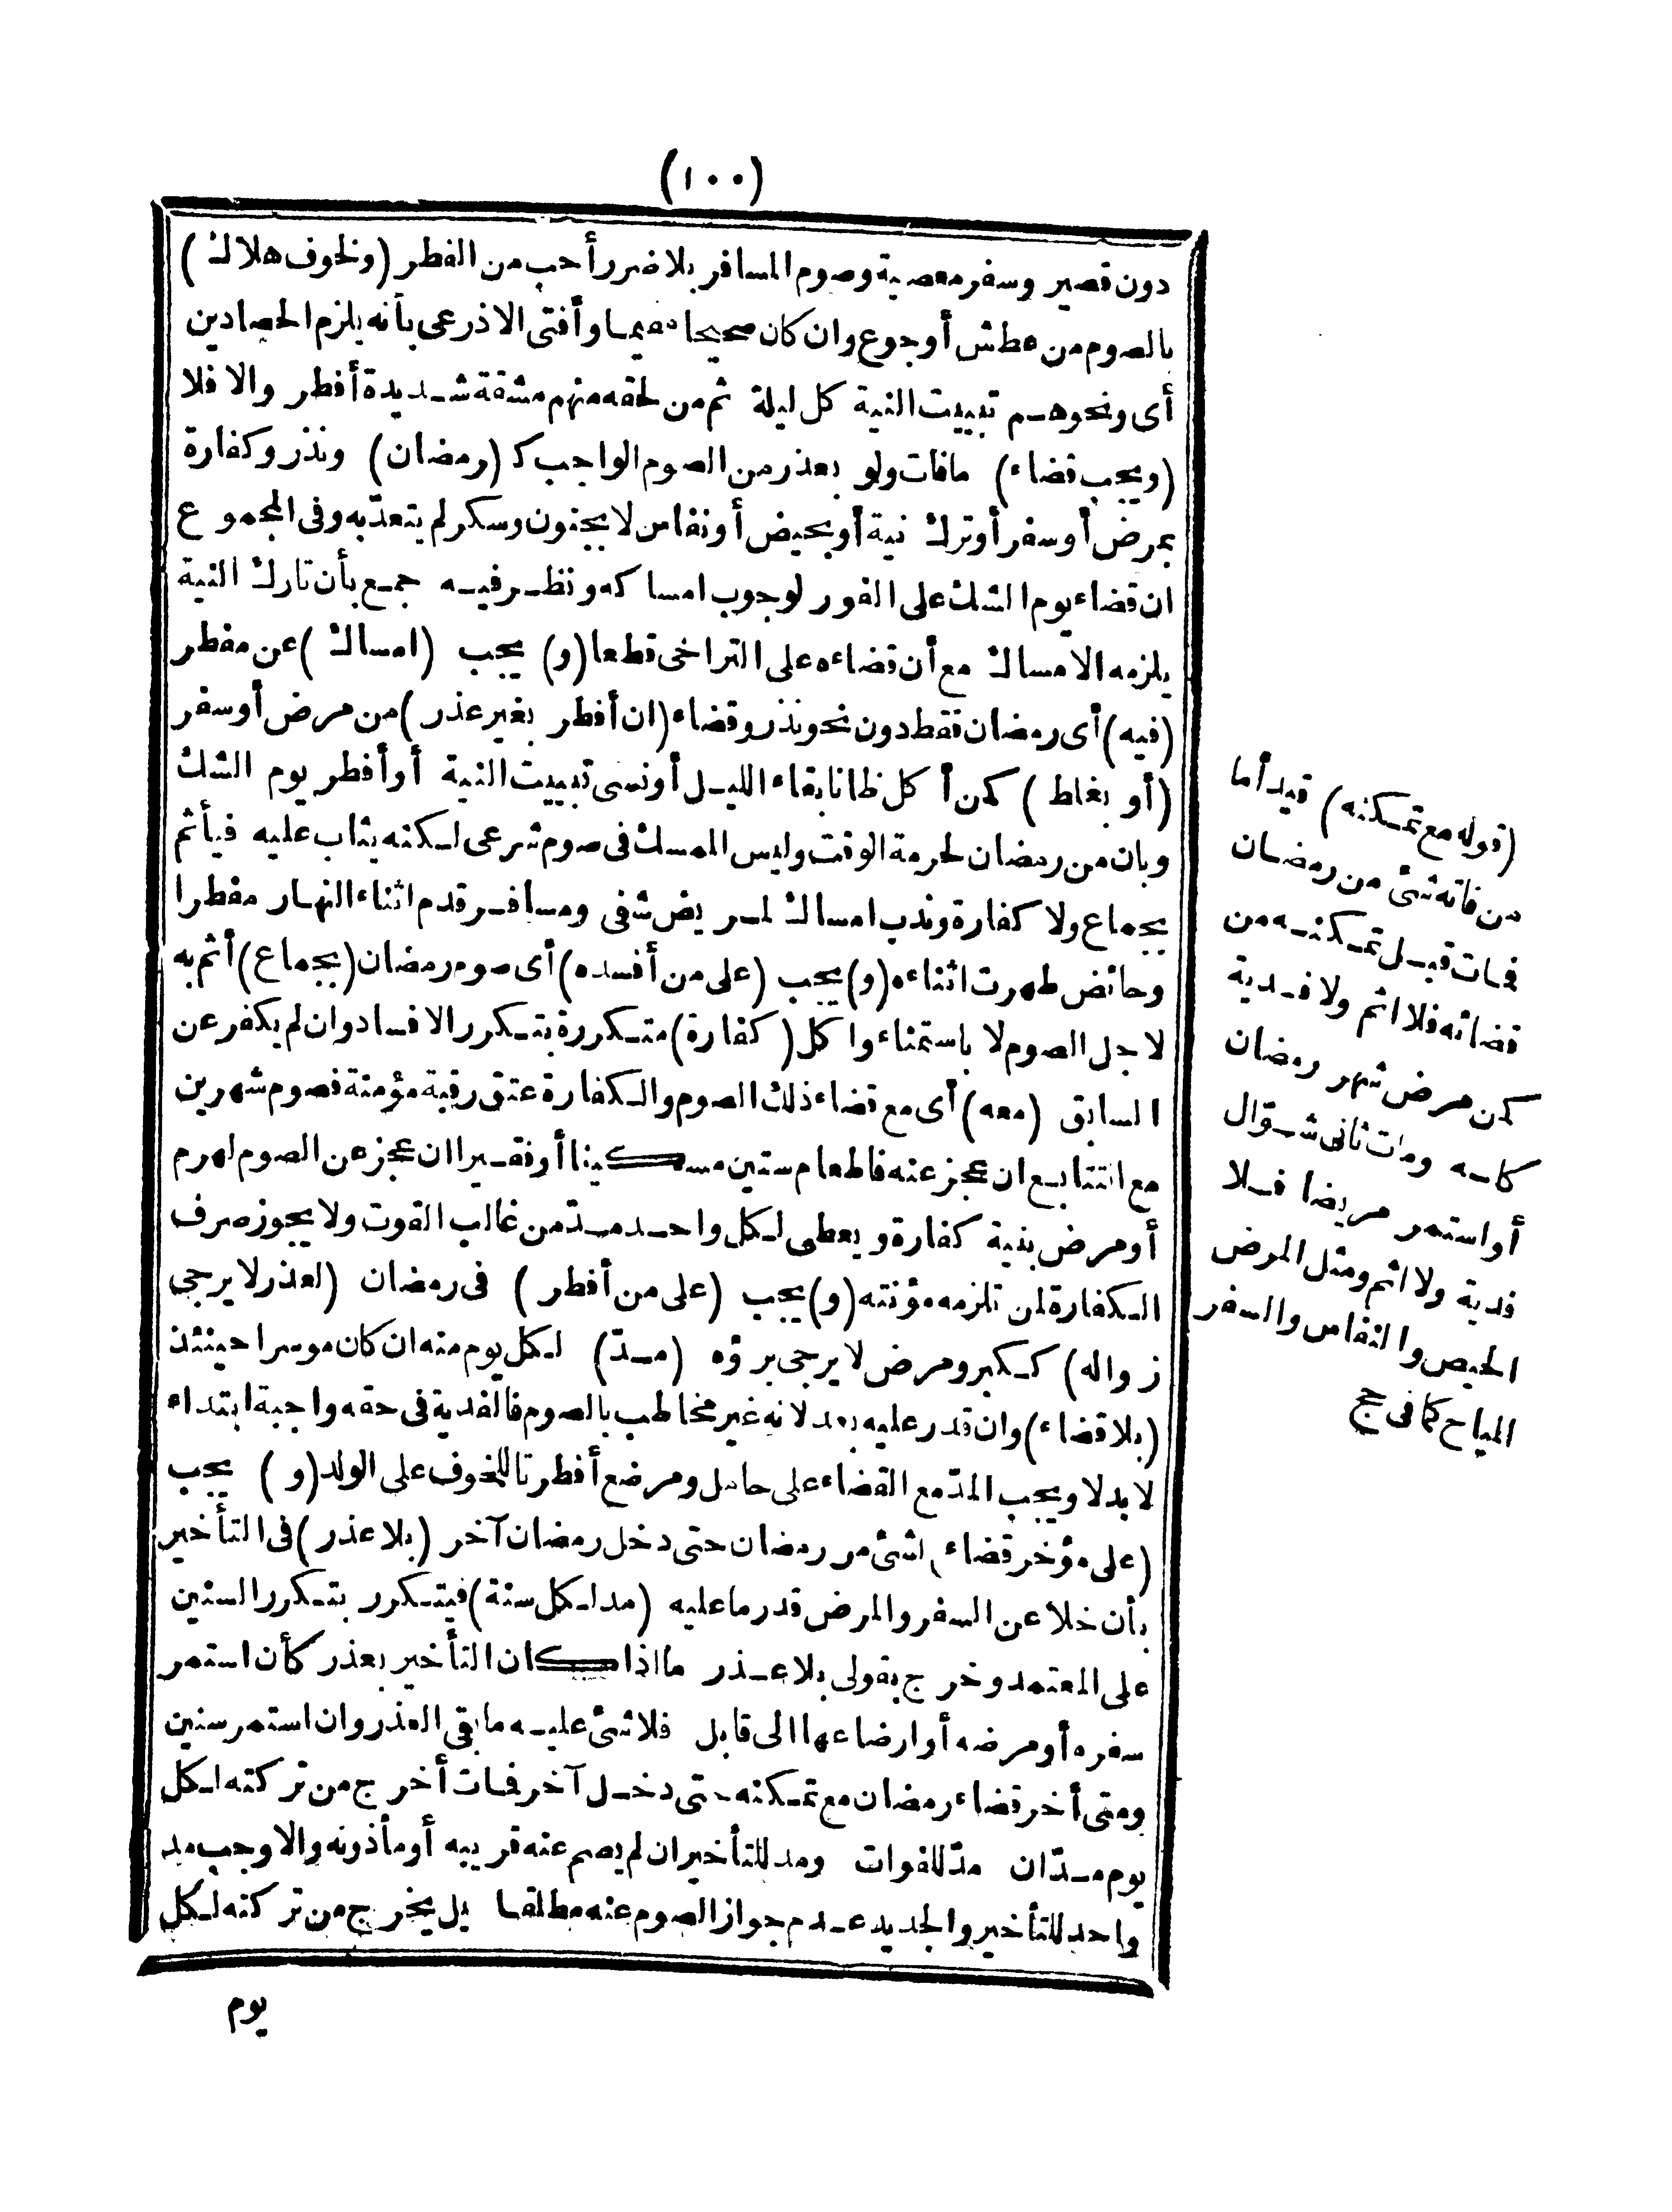 (١٠٠)
دون قصير وسفر معصية وصوم المسافر بلا ضرر أحب من الفطر (ولخوف هلاك)
بالصوم من عطش أو جوع وان كان صحيحا مقيما وأفتى الاذرعى بأنه يلزم الحصادين
أى ونحوهم تبييت النية كل ليلة ثم من لحقه منهم مشقة شديدة أفطر والا فلا
(ويجب قضاء) مافات ولو بعذر من الصوم الواجب كـ (رمضان) ونذر وكفارة
بمرض أو سفر أو ترك نية أو بحيض أو نفاس لا بجنون وسكر لم يتعدّ به وفى المجموع
ان قضاء يوم الشك على الفور لوجوب امساكه ونظر فيه جمع بأن تارك النية
يلزمه الامساك مع أن قضاءه على التراخى قطعا (و) يجب (امساك) عن مفطر
(فيه) أى رمضان فقط دون نحو نذر وقضاء (ان أفطر بغير عذر) من مرض أو سفر
(أو بغلط) كمن أكل ظانا بقاء الليل أو نسى تبييت النية أو أفطر يوم الشك
وبان من رمضان لحرمة الوقت وليس الممسك فى صوم شرعى لكنه يثاب عليه فيأثم
بجماع ولا كفارة وندب امساك لمريض شفى ومسافر قدم اثناء النهار مفطرا
وحائض طهرت اثناءه (و) يجب (على من أفسده) أى صوم رمضان (بجماع) أثم به
لاجل الصوم لا باستمناء واكل (كفارة) متكررة بتكرر الافساد وان لم يكفر عن
السابق (معه) أى مع قضاء ذلك الصوم والكفارة عتق رقبة مؤمنة فصوم شهرين
مع التتابع ان عجز عنه فاطعام ستين مسكينا أو فقيرا ان عجز عن الصوم لهرم
أو مرض بنية كفارة ويعطى لكل واحد مدّ من غالب القوت ولا يجوز صرف
الكفارة لمن تلزمه مؤنته (و) يجب (على من أفطر) فى رمضان (لعذر لا يرجى
زواله) ككبر ومرض لا يرجى برؤه (مدّ) لكل يوم منه ان كان موسرا حينئذ
(بلا قضاء) وان قدر عليه بعد لانه غير مخاطب بالصوم فالفدية فى حقه واجبة ابتداء
لا بدلا ويجب المدّ مع القضاء على حامل ومرضع أفطرتا للخوف على الولد (و) يجب
(على مؤخر قضاء) لشئ من رمضان حتى دخل رمضان آخر (بلا عذر) فى التأخير
بأن خلا عن السفر والمرض قدر ما عليه (مد لكل سنة) فيتكرر بتكرر السنين
على المعتمد وخرج بقولى بلا عذر ما اذا كان التأخير بعذر كأن استمر
سفره أو مرضه أو ارضاعها الى قابل فلا شئ عليه ما بقى العذر وان استمر سنين
ومتى أخر قضاء رمضان مع تمكنه حتى دخل آخر فمات أخرج من تركته لكل
يوم مدّان مدّ للفوات ومد للتأخير ان لم يصم عنه قريبه أو مأذونه والا وجب مد
واحد للتأخير والجديد عدم جواز الصوم عنه مطلقا بل يخرج من تركته لكل
يوم
(قوله مع تمكنه) قيد أما
من فاته شئ من رمضان
فمات قبل تمكنه من
قضائه فلا اثم ولا فدية
كمن مرض شهر رمضان
كله ومات ثانى شوّال
أو استمر مريضا فلا
فدية ولا اثم ومثل المرض
الحيض والنفاس والسفر
المباح كما فى حج